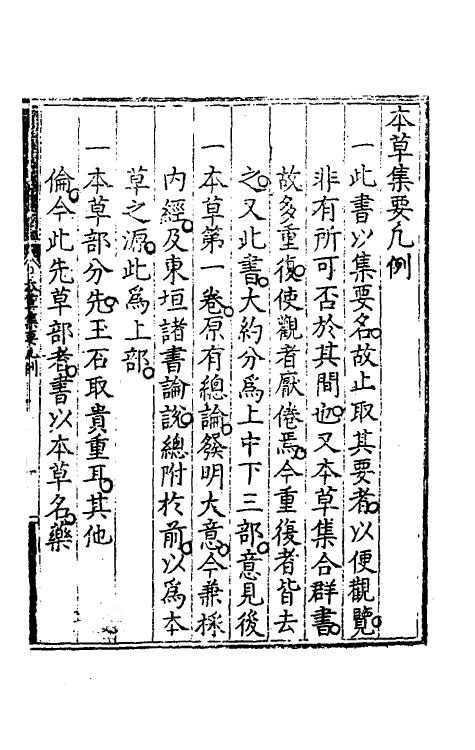 本草集要凡例
一此書以集要名。故止取其要者。以便觀覽。
非有所可否於其間也。又本草集合群書。
故多重復。使觀者厭倦焉。今重復者皆去
之。又此書。大約分爲上中下三部。意見後
一本草第一卷。原有總論。發明大意。今兼採
內經。及東垣諸書論說。總附於前。以爲本
草之源。此爲上部。
一本草部分。先玉石取貴重耳。其他
倫。今此先草部者。書以本草名。藥